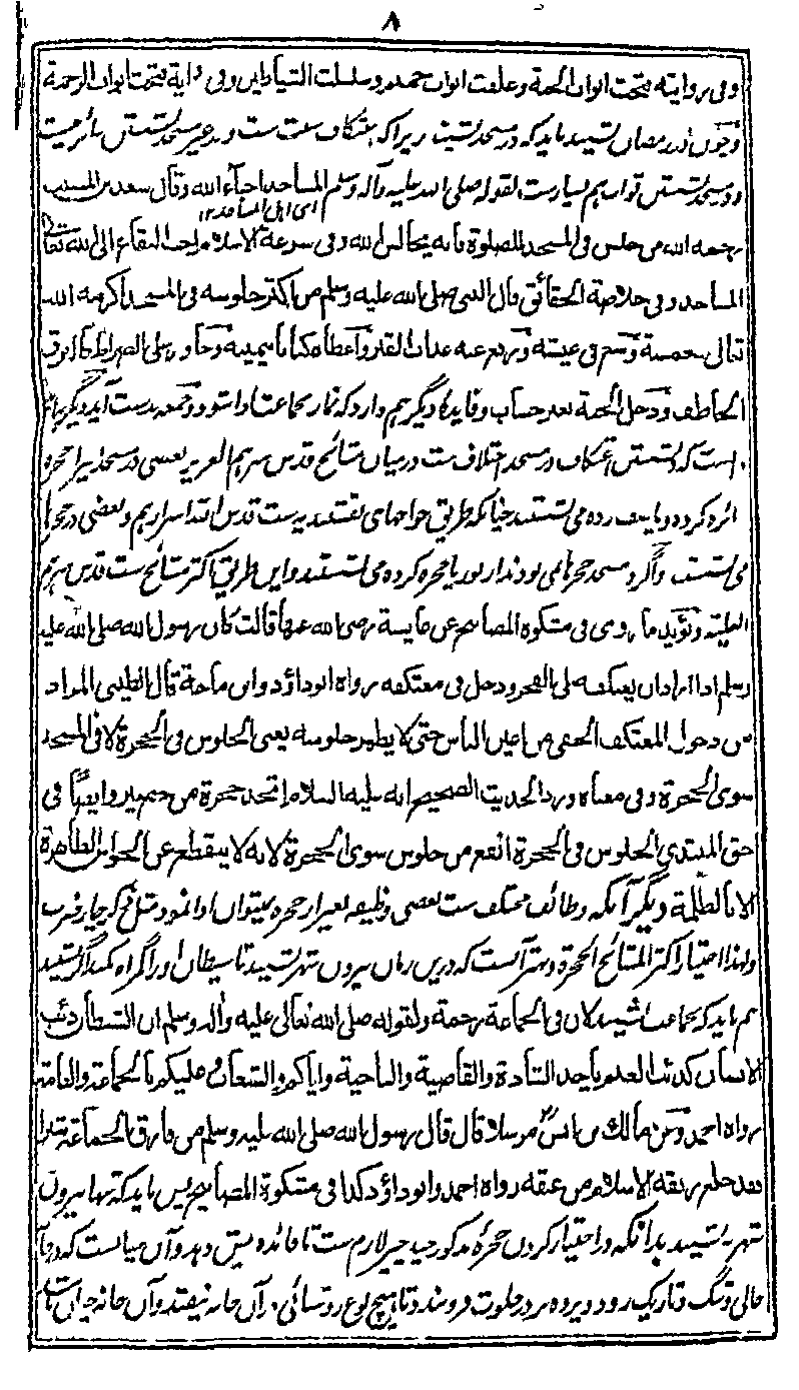 ۸
وفی روایته فتحت ابواب الجنة وغلقت ابواب جهنم وسلسلت الشیاطین وفی روایة فتحت ابواب الرحمة
وچون در رمضان نشیند باید که در مسجد نشیند زیراکه اعتکاف سنت ست ودر غیر مسجد نشستن
ودر مسجد نشستن ثواب هم بسیارست لقوله صلی الله علیه وآله وسلم المساجد احباء الله وقال سعید بن المسیب
ای اهل المساجد ۱۲
رحمه الله من جلس فی المسجد للصلوة فانه یجالس الله وفی شرعة الاسلام احب البقاع الی الله تعالی
المساجد وفی خلاصة الحقائق قال النبی صلی الله علیه وسلم من اکثر جلوسه فی المسجد اکرمه الله
تعالی بخمسة فی عیشه ویرفع عنه عذاب القبر واعطاه کتابه بیمینه وجاوز علی الصراط کالبرق
الخاطف ودخل الجنة بغیر حساب وفایدهٔ دیگر هم دارد که نماز بجماعت ادا شود وجمعه بدست آید ودیگر
است که نشستن اعتکاف در مسجد اختلاف ست درمیان مشائخ قدس سرهم العزیز بعضی در مسجد زیر حجره
کرده ویا می نشستند چنانکه طریق خواجهای نقشبندیه ست قدس الله اسرارهم وبعضی در حجرها
می نشستند واگر در مسجد حجرها نمی بودند از بوریا حجره کرده می نشستند واین طریق اکثر مشائخ ست قدس سرهم
العلیة ویؤید ما روی فی مشکوة المصابیح عن عایشة رضی الله عنها قالت کان رسول الله صلی الله علیه
وسلم اذا اراد ان یعتکف صلی الفجر ودخل فی معتکفه رواه ابوداؤد وابن ماجة قال الطیبی المراد
من دخول المعتکف الخفی من اعین الناس حتی لا یظهر جلوسه یعنی الجلوس فی الحجرة لا فی المسجد
سوی الحجرة وفی معناه ورد الحدیث الصحیح انه علیه السلام اتخذ حجرة من حصیر وایضا فی
حق المبتدی الجلوس فی الحجرة انفع من جلوس سوی الحجرة لانه لا ینقطع عن الحواس الظاهرة
الا بالظلمة ودیگر آنکه وظائف مختلف ست بعضی وظیفه بغیر از حجره نمیتوان ادا نمود مثل ذکر چار ضرب
ولهذا اختیار اکثر المشائخ الحجرة وبهتر آنست که درین زمان بیرون شهر نشیند تا شیطان اورا گمراه کند اگر نشیند
هم باید که بجماعت نشیند لان فی الجماعة رحمة ولقوله صلی الله تعالی علیه وآله وسلم ان الشیطان ذئب
الانسان کذئب الغنم یأخذ الشاذة والقاصیة والناحیة وایاکم والشعاب وعلیکم بالجماعة والعامة
رواه احمد وعن مالک بن انس مرسلا قال قال رسول الله صلی الله علیه وسلم من فارق الجماعة شبرا
فقد خلع ربقة الاسلام من عنقه رواه احمد وابوداؤد کذا فی مشکوة المصابیح پس باید که تنها بیرون
شهر نه نشیند بدانکه در اختیار کردن حجرهٔ مذکور چند چیز لازم ست تا فائده پیش دهد وآن میانست که در
خالی وتنگ وتاریک رود وپرده بر در خلوت فروبندد تا هیچ نوع روشنائی در آن خانه نیفتد وآن خانه چنان